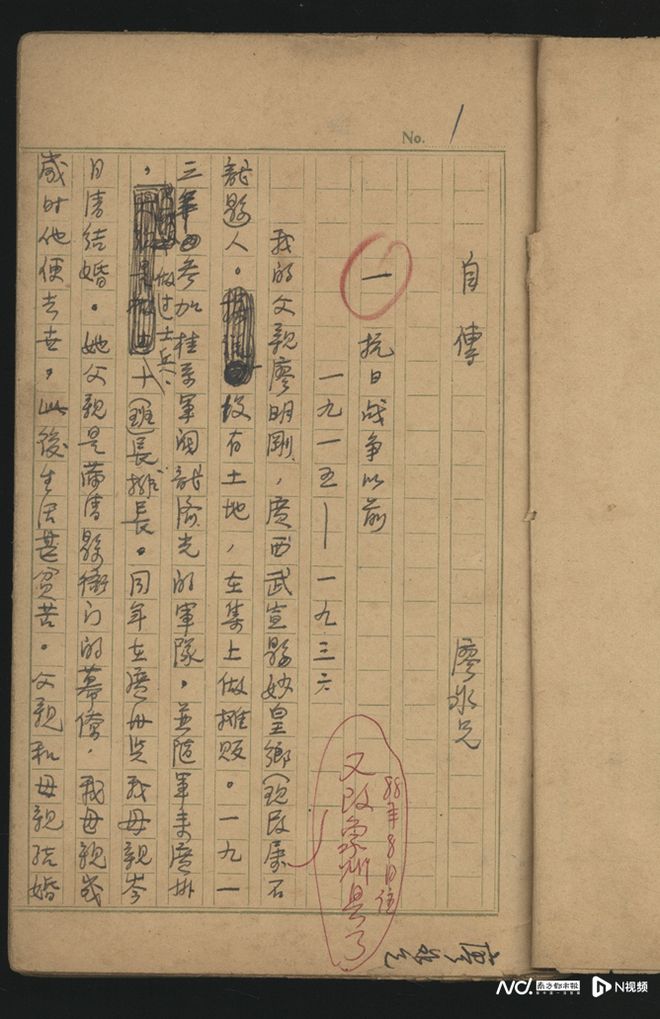 No. 1
自傳 廖冰兄
一 抗日战争以前
一九一五—一九三六
88年8月注
又改象州县了
我的父親廖明剛，廣西武宣縣妙皇鄉(现改屬石
龍縣人。没有土地，在集上做摊贩。一九一
三年参加桂系軍阀龍濟光的軍隊，並随軍来廣州
，做过士兵、十(班)長排長。同年在廣州与我母親岑
月清結婚。她父親是满清縣衙门的幕僚，我母親幾
歲时他便去世，此後生活甚贫苦。父親和母親結婚
南方都市报
N视频